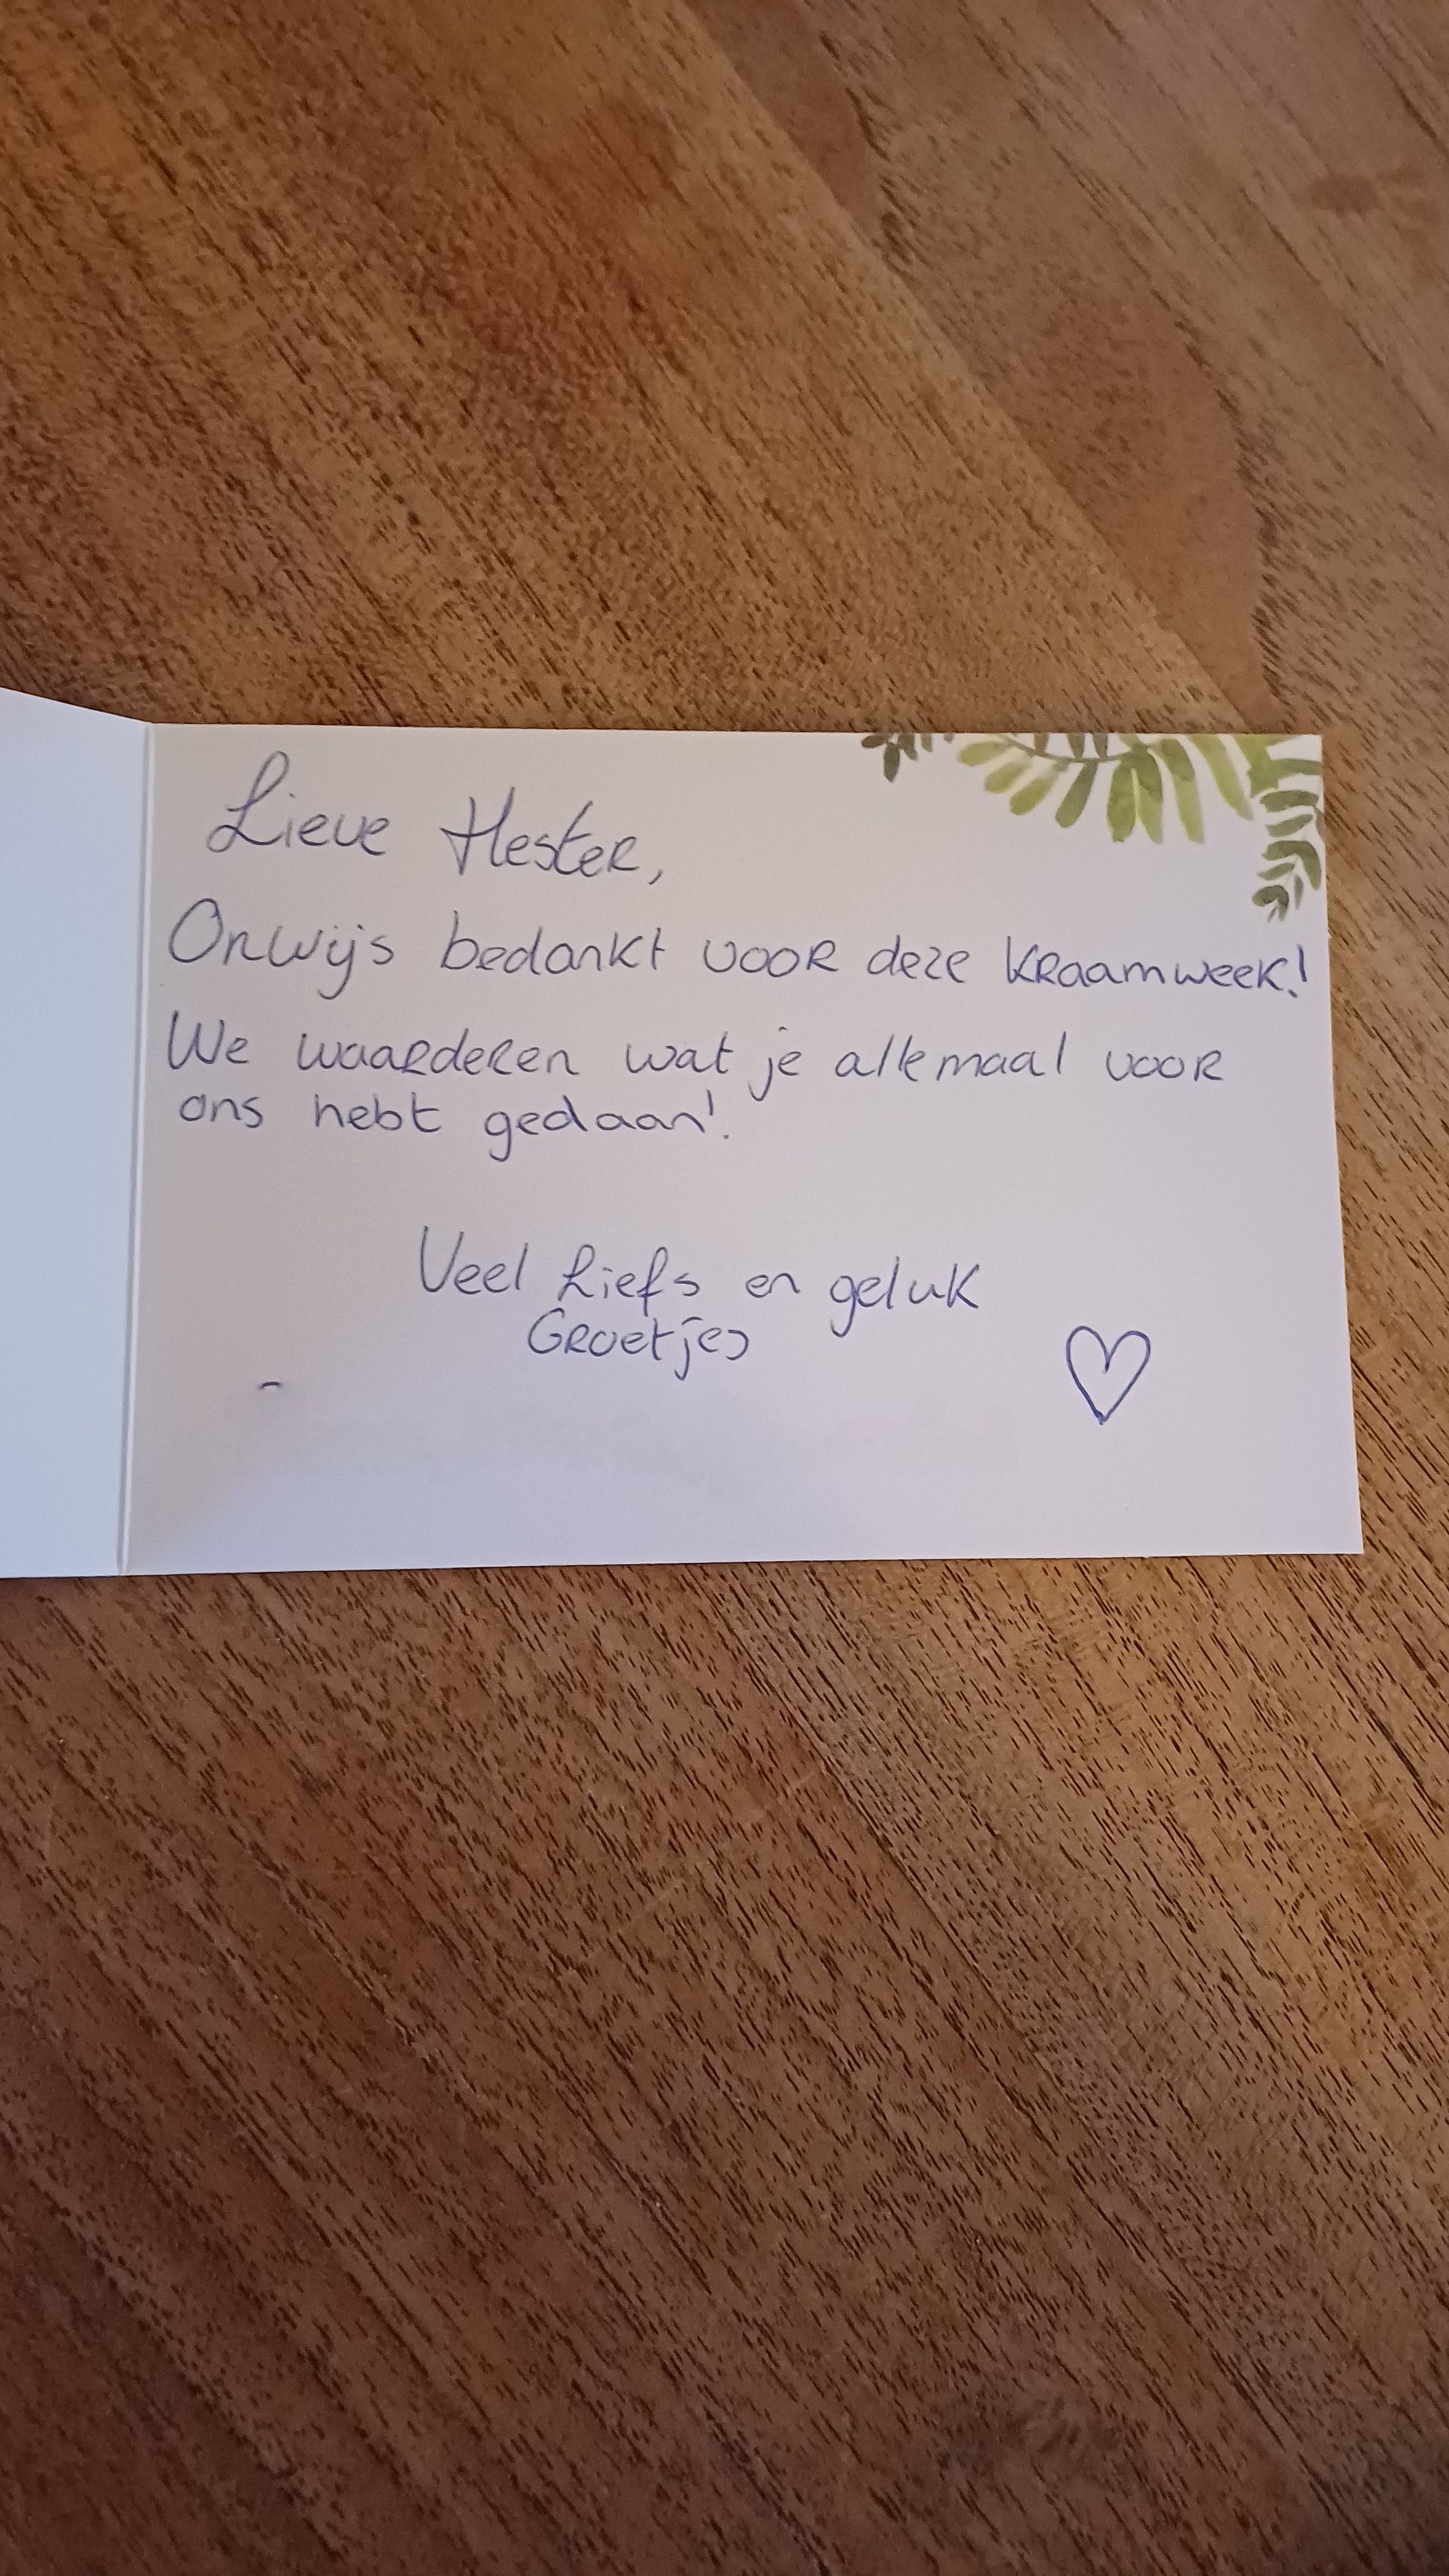 Lieve Hester,
Onwijs bedankt voor deze kraamweek!
We waarderen wat je allemaal voor
ons hebt gedaan!
Veel liefs en geluk
Groetjes